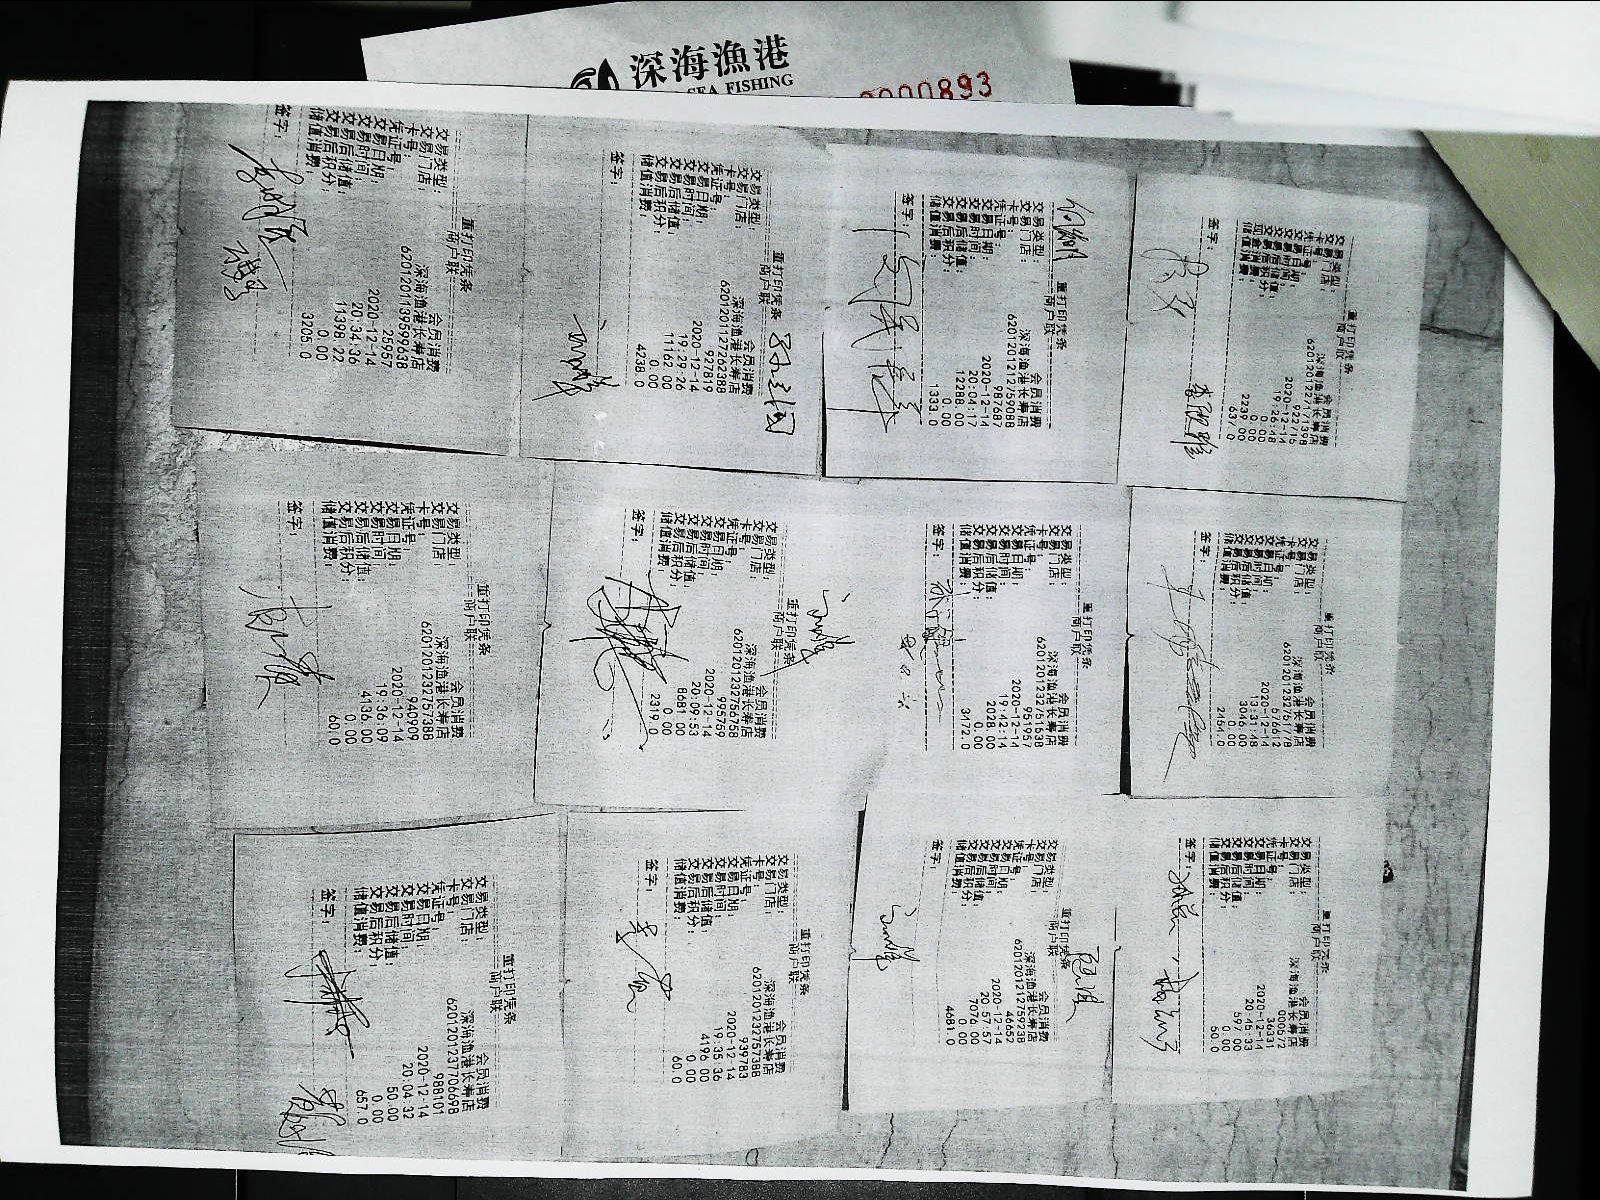 深海漁港
SEA FISHING
0000893
重打印凭条
商户联
交易类型: 会员消费
交易门店: 深海渔港长寿店
卡号: 6201201227171398
凭证号: 922716
交易日期: 2020-12-14
交易时间: 19:26:48
0.00
0.00
2239.00
储值消费: 637.0
签字:
重打印凭条
商户联
交易类型: 会员消费
交易门店: 深海渔港长寿店
卡号: 6201201232761778
凭证号: 576612
交易日期: 2020-12-14
交易时间: 13:31:48
交易后储值: 3046.00
交易后积分: 0.00
储值消费: 2454.0
签字:
重打印凭条
商户联
交易类型: 会员消费
交易门店: 深海渔港长寿店
卡号: 000572
凭证号: 3631
交易日期: 2020-12-14
交易时间: 20:45:33
交易后储值: 597.00
交易后积分: 0.00
储值消费: 50.0
签字:
重打印凭条
商户联
交易类型: 会员消费
交易门店: 深海渔港长寿店
卡号: 6201201212759688
凭证号: 987687
交易日期: 2020-12-14
交易时间: 20:04:17
交易后储值: 12288.00
交易后积分: 0.00
储值消费: 1333.0
签字:
重打印凭条
商户联
交易类型: 会员消费
交易门店: 深海渔港长寿店
卡号: 6201201232751538
凭证号: 951957
交易日期: 2020-12-14
交易时间: 19:42:14
交易后储值: 2028.00
交易后积分: 0.00
储值消费: 3472.0
签字:
重打印凭条
商户联
交易类型: 会员消费
交易门店: 深海渔港长寿店
卡号: 6201201212759238
凭证号: 46652
交易日期: 2020-12-14
交易时间: 20:57:57
交易后储值: 7076.00
交易后积分: 0.00
储值消费: 4681.0
签字:
重打印凭条
商户联
交易类型: 会员消费
交易门店: 深海渔港长寿店
卡号: 6201201127262388
凭证号: 927819
交易日期: 2020-12-14
交易时间: 19:29:26
交易后储值: 11162.00
交易后积分: 0.00
储值消费: 4238.0
签字:
重打印凭条
商户联
交易类型: 会员消费
交易门店: 深海渔港长寿店
卡号: 6201201232756758
凭证号: 995759
交易日期: 2020-12-14
交易时间: 20:09:53
交易后储值: 8681.00
交易后积分: 0.00
储值消费: 2319.0
签字:
重打印凭条
商户联
交易类型: 会员消费
交易门店: 深海渔港长寿店
卡号: 6201201232757388
凭证号: 939783
交易日期: 2020-12-14
交易时间: 19:35:36
交易后储值: 4196.00
交易后积分: 0.00
储值消费: 60.0
签字:
重打印凭条
商户联
交易类型: 会员消费
交易门店: 深海渔港长寿店
卡号: 6201201139599638
凭证号: 25957
交易日期: 2020-12-14
交易时间: 20:34:36
交易后储值: 11398.22
交易后积分: 0.00
储值消费: 3205.0
签字:
重打印凭条
商户联
交易类型: 会员消费
交易门店: 深海渔港长寿店
卡号: 6201201232757388
凭证号: 940909
交易日期: 2020-12-14
交易时间: 19:36:09
交易后储值: 4136.00
交易后积分: 0.00
储值消费: 60.0
签字:
重打印凭条
商户联
交易类型: 会员消费
交易门店: 深海渔港长寿店
卡号: 6201201237706698
凭证号: 988101
交易日期: 2020-12-14
交易时间: 20:04:32
交易后储值: 50.00
交易后积分: 0.00
储值消费: 657.0
签字: